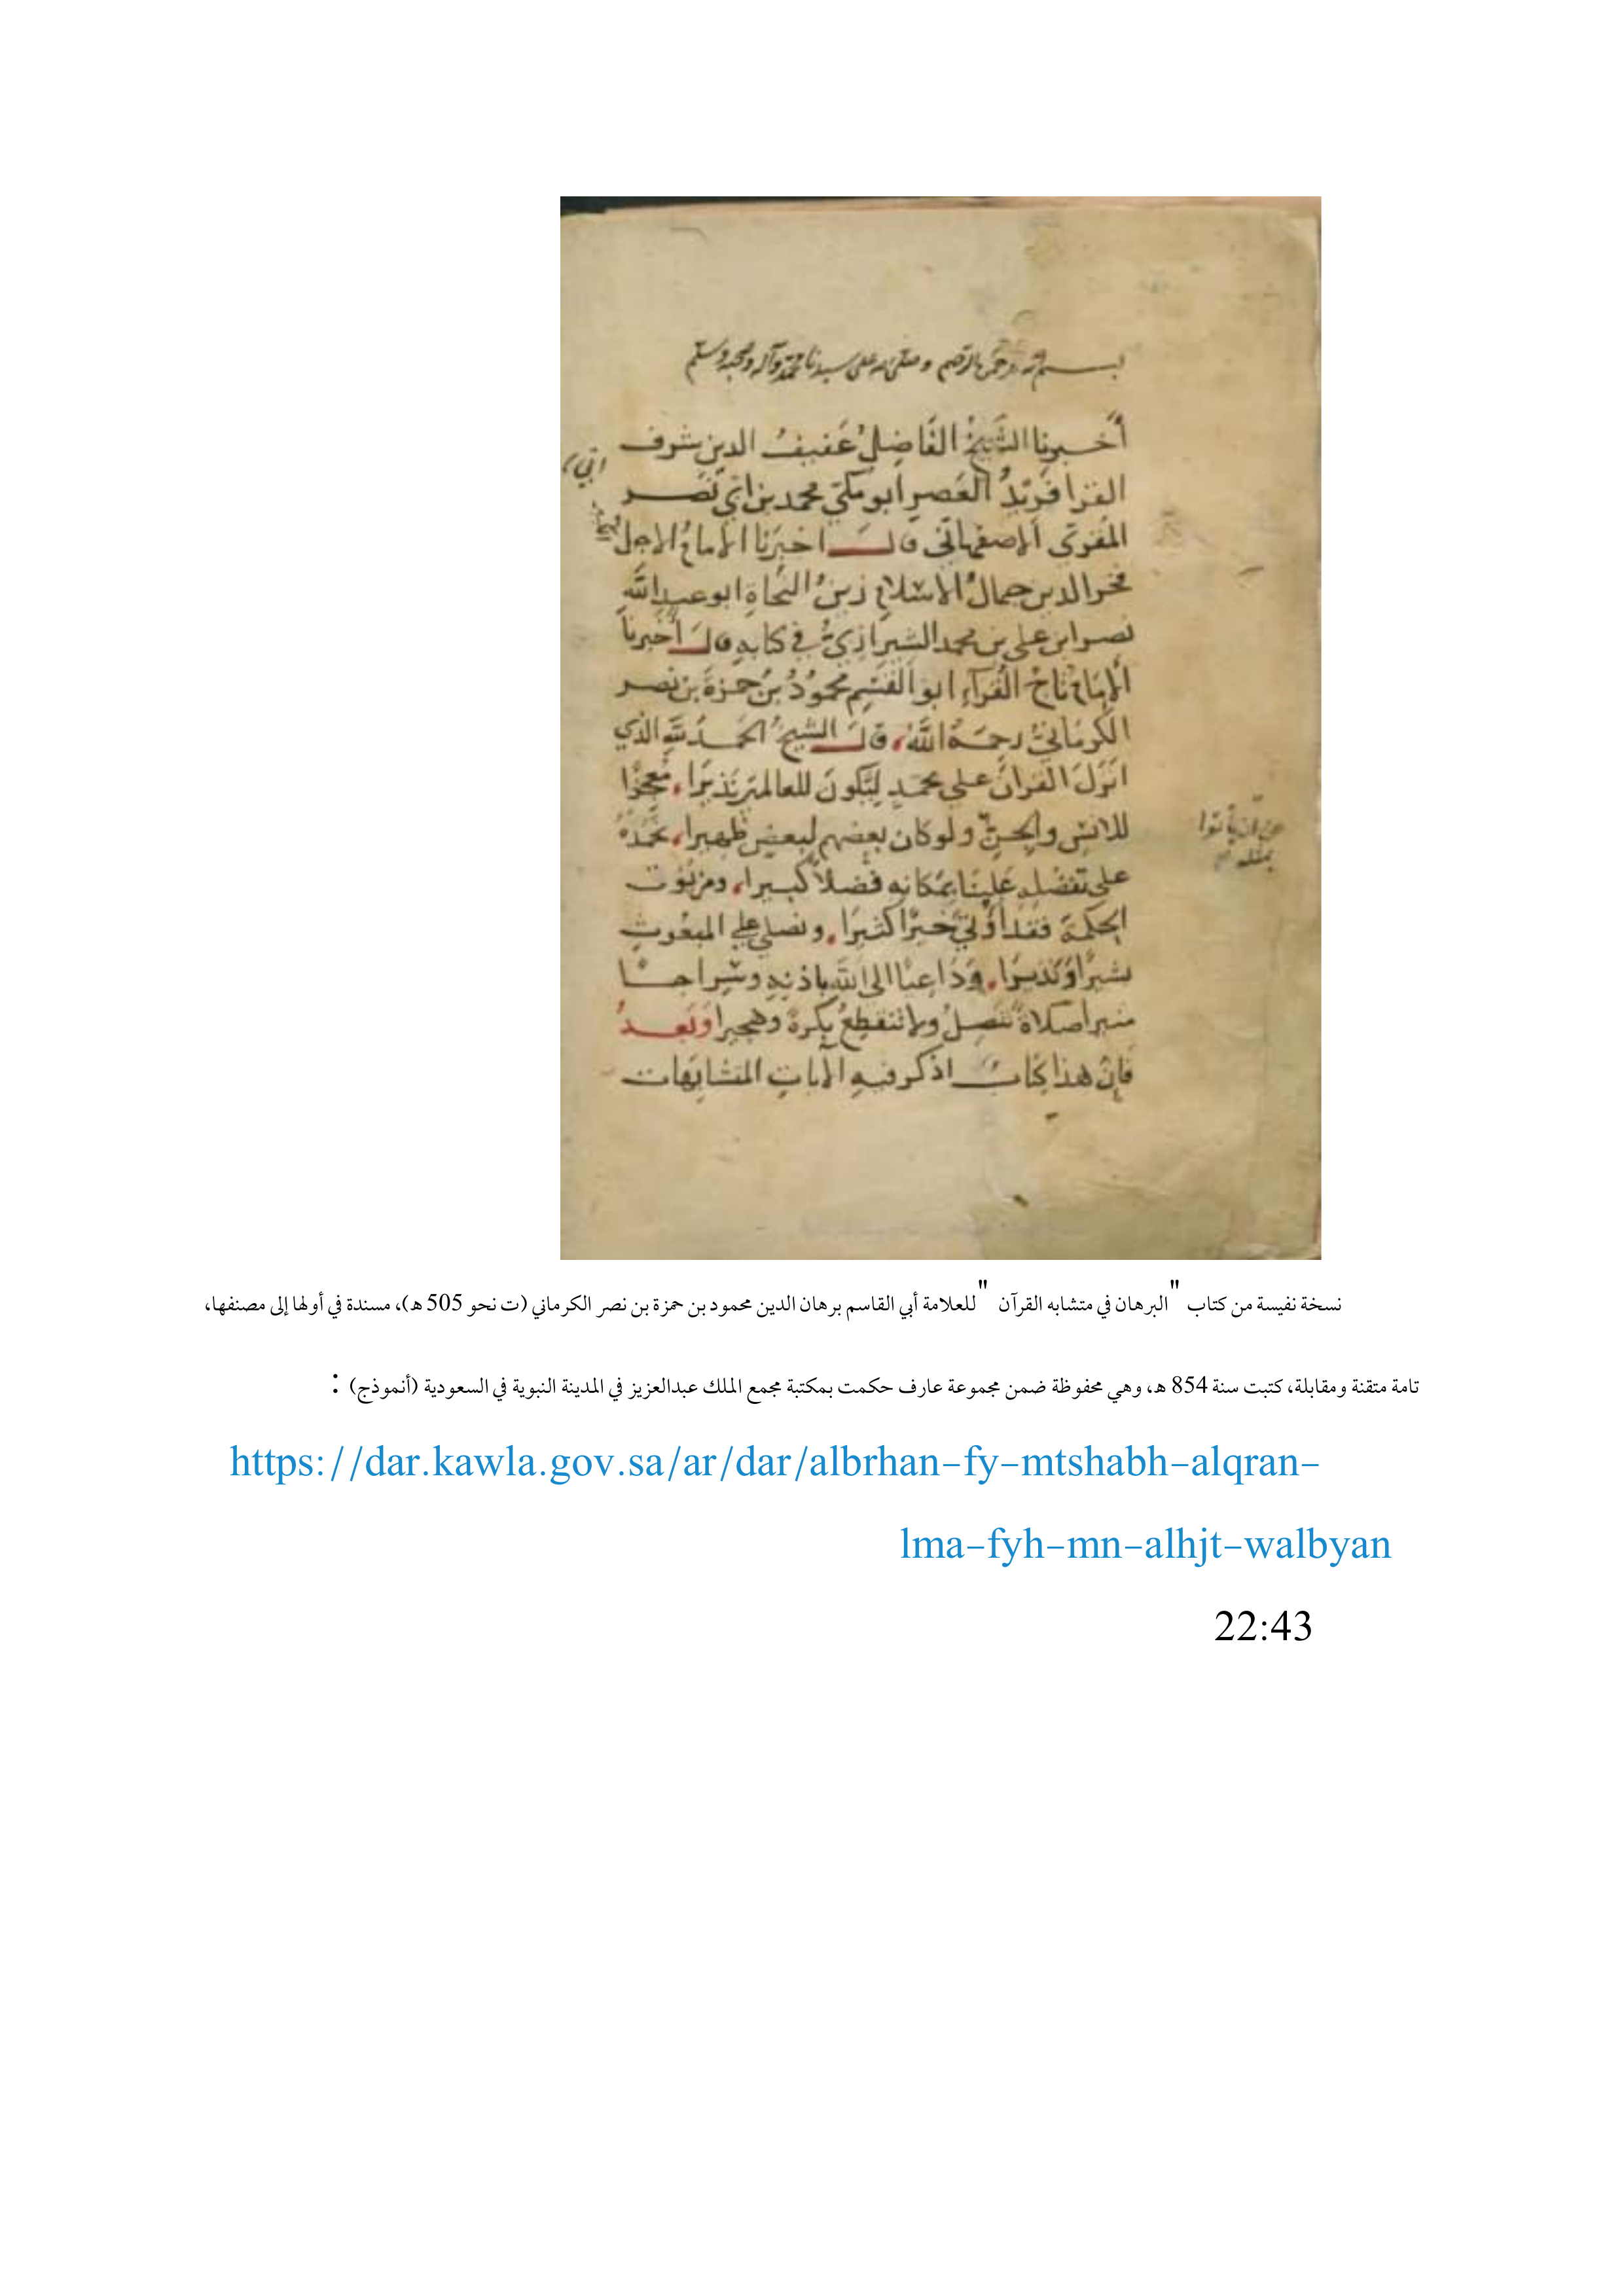 بسم الله الرحمن الرحيم وصلى الله على سيدنا محمد وآله وصحبه وسلم
أخبرنا الشيخ الفاضل عفيف الدين شرف
القرا فريد العصر ابو مكي محمد بن ابي نصر
المقري الاصفهاني قال اخبرنا الامام الاجل
فخر الدين جمال الاسلام زين النحاة ابو عبد الله
نصر ابن علي بن محمد الشيرازي في كتابه قال أخبرنا
الإمام تاج القرآء ابو القسم محمود بن حمزة بن نصر
الكرماني رحمة الله، قال الشيخ الحمد لله الذي
انزل القران على محمد ليكون للعالمين نذيرا، معجزا
للانس والجن ولو كان بعضهم لبعض ظهيرا، نحمده
على تفضله علينا بمكانه فضلا كبيرا، ومن يؤت
الحكمة فقد أوتي خيرا كثيرا، ونصلي على المبعوث
بشيرا ونذيرا، وداعيا الى الله باذنه وسراجا
منيرا صلاة تتصل ولا تنقطع بكرة وهجيرا وبعد
فإن هذا كتاب اذكر فيه الآيات المتشابهات
عن ان يأتوا
بمثله
نسخة نفيسة من كتاب "البرهان في متشابه القرآن" للعلامة أبي القاسم برهان الدين محمود بن حمزة بن نصر الكرماني (ت نحو 505 هـ)، مسندة في أولها إلى مصنفها،
تامة متقنة ومقابلة، كتبت سنة 854 هـ، وهي محفوظة ضمن مجموعة عارف حكمت بمكتبة مجمع الملك عبدالعزيز في المدينة النبوية في السعودية (أنموذج) :
https://dar.kawla.gov.sa/ar/dar/albrhan-fy-mtshabh-alqran-
lma-fyh-mn-alhjt-walbyan
22:43